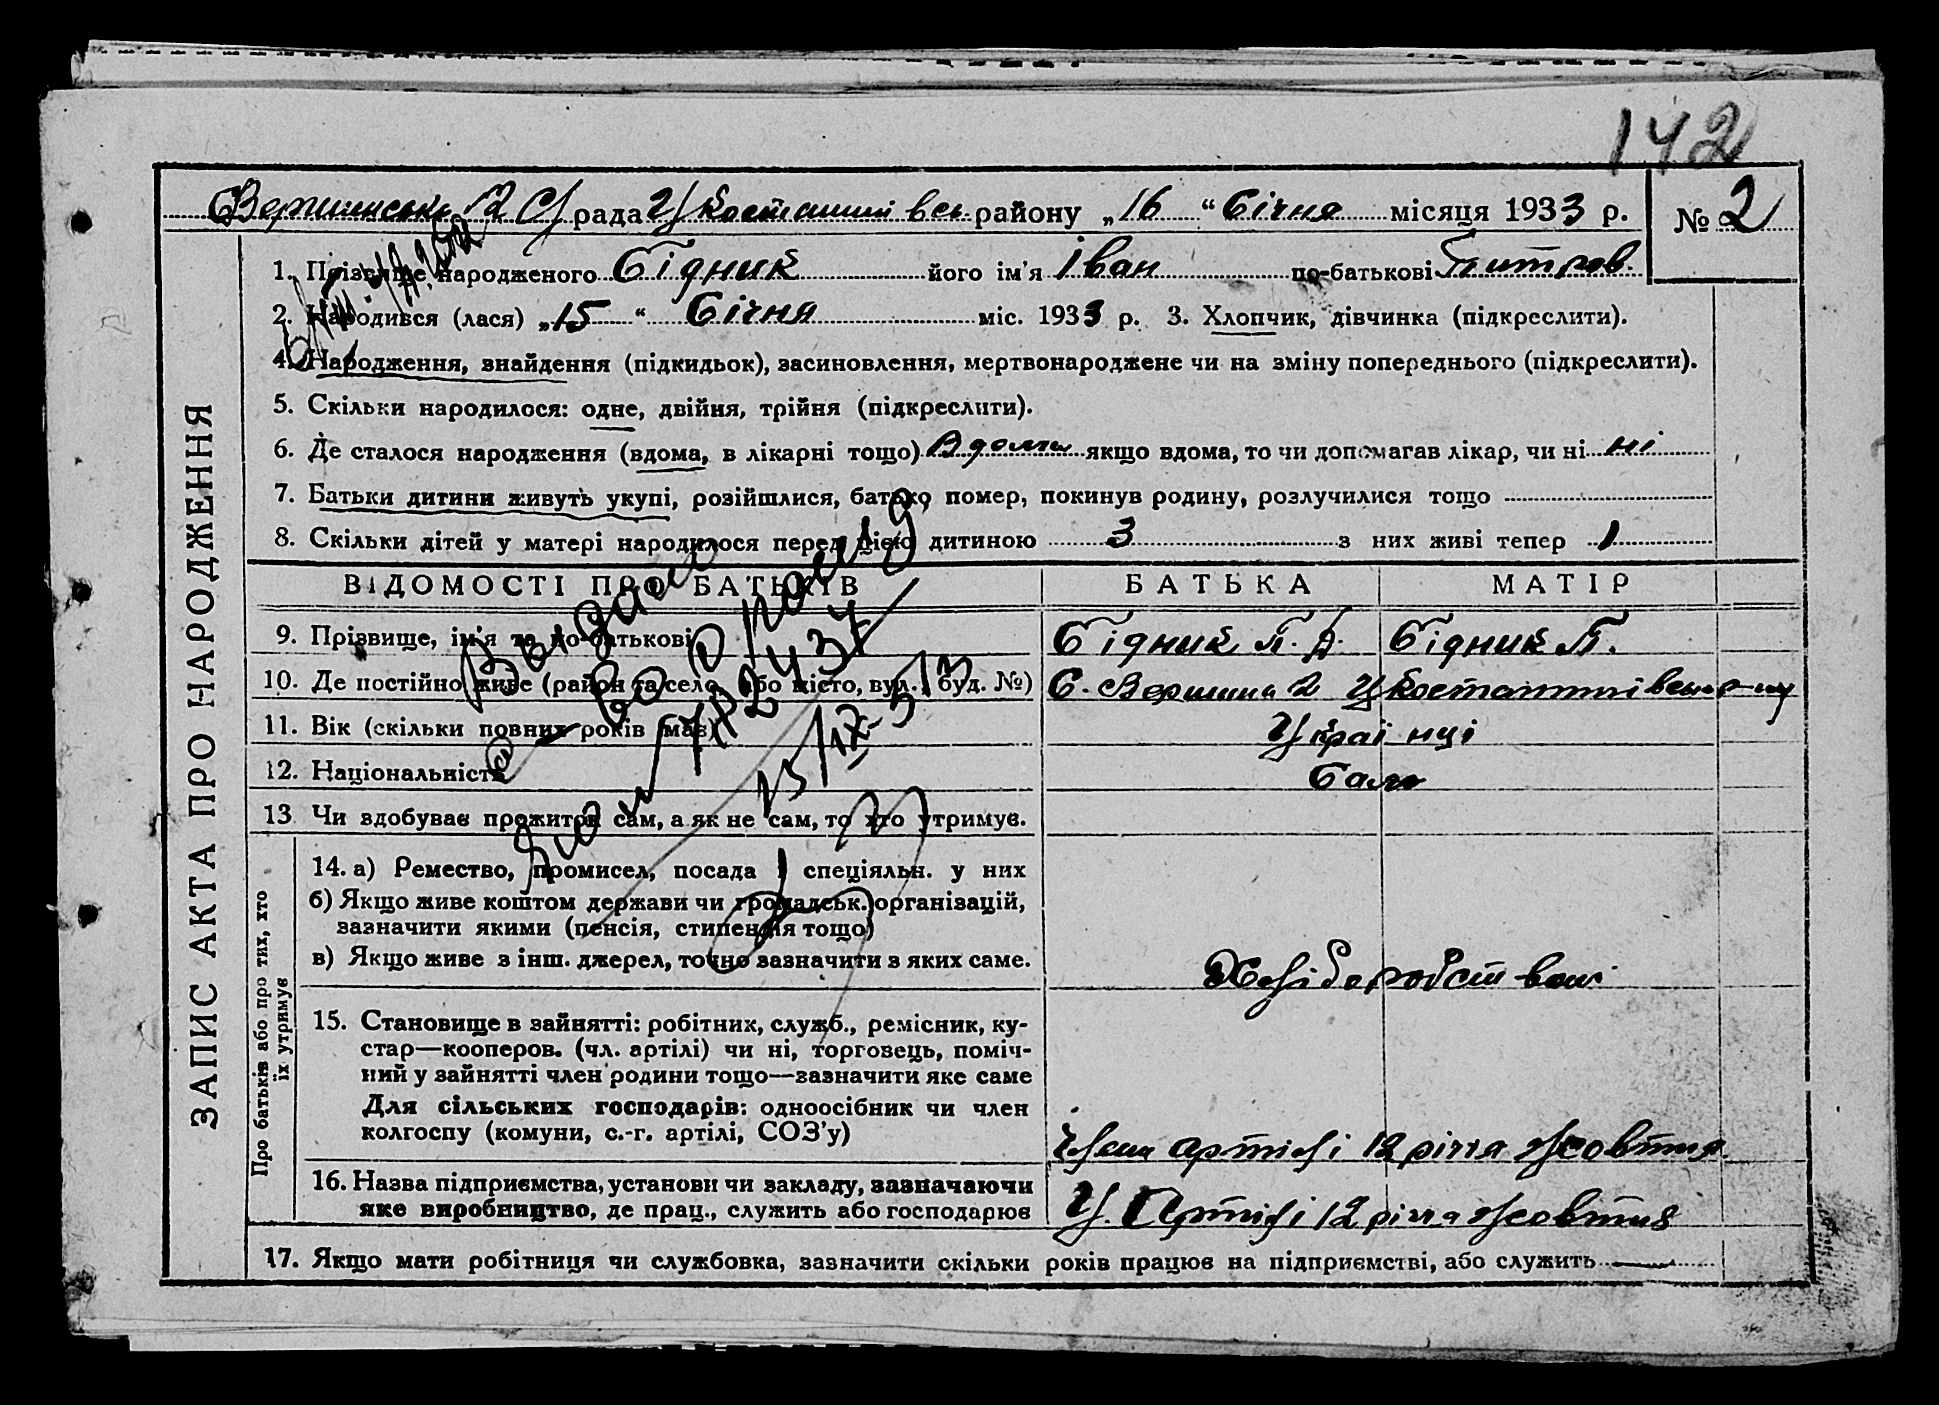 142
Вершинська 2 С/рада Ц/Костянтинівськ району „16“ Січня місяця 1933 р. № 2
ЗАПИС АКТА ПРО НАРОДЖЕННЯ
1. Прізвище народженого Бідник його ім'я Іван по-батькові
2. Народився (лася) „15“ Січня міс. 1933 р. 3. Хлопчик, дівчинка (підкреслити).
4. Народження, знайдення (підкидьок), засиновлення, мертвонароджене чи на зміну попереднього (підкреслити).
5. Скільки народилося: одне, двійня, трійня (підкреслити).
6. Де сталося народження (вдома, в лікарні тощо) Вдома якщо вдома, то чи допомагав лікар, чи ні ні
7. Батьки дитини живуть укупі, розійшлися, батько помер, покинув родину, розлучилися тощо
8. Скільки дітей у матері народилося перед цією дитиною 3 з них живі тепер 1
ВІДОМОСТІ ПРО БАТЬКІВ БАТЬКА МАТІР
9. Прізвище, ім'я та по-батькові Бідник П. Бідник П.
10. Де постійно живе (район та село, або місто, вул., буд. №) С. Вершина 2
11. Вік (скільки повних років має) Українці
12. Національність Само
13 Чи здобуває прожиток сам, а як не сам, то хто утримує.
Про батьків або про тих, хто їх утримує
14. а) Ремество, промисел, посада і спеціяльн. у них
б) Якщо живе коштом держави чи громадськ. організацій,
зазначити якими (пенсія, стипендія тощо)
в) Якщо живе з інш. джерел, точно зазначити з яких саме.
Хліборобство
15. Становище в зайнятті: робітник, служб., ремісник, ку-
стар—кооперов. (чл. артілі) чи ні, торговець, поміч-
ний у зайнятті член родини тощо—зазначити яке саме
Для сільських господарів: одноосібник чи член
колгоспу (комуни, с.-г. артілі, СОЗ'у)
Член артілі 12 річчя жовтня
16. Назва підприємства, установи чи закладу, зазначаючи
яке виробництво, де прац., служить або господарює
У. Артілі 12 річчя жовтня
17. Якщо мати робітниця чи службовка, зазначити скільки років працює на підприємстві, або служить —